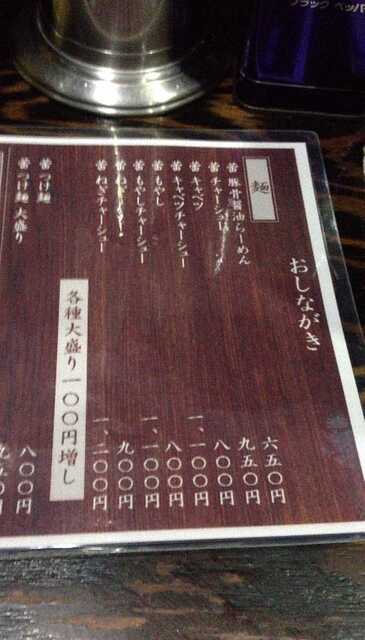 ブラック ペッパ
おしながき
麺
蕾 豚骨醤油らーめん 六五〇円
蕾 チャーシュー 九五〇円
蕾 キャベツ 八〇〇円
蕾 キャベツチャーシュー 一、一〇〇円
蕾 もやし 八〇〇円
蕾 もやしチャーシュー 一、一〇〇円
蕾 九〇〇円
蕾 ねぎチャーシュー 一、二〇〇円
各種大盛り一〇〇円増し
蕾 つけ麺 八〇〇円
蕾 つけ麺 大盛り 九五〇円